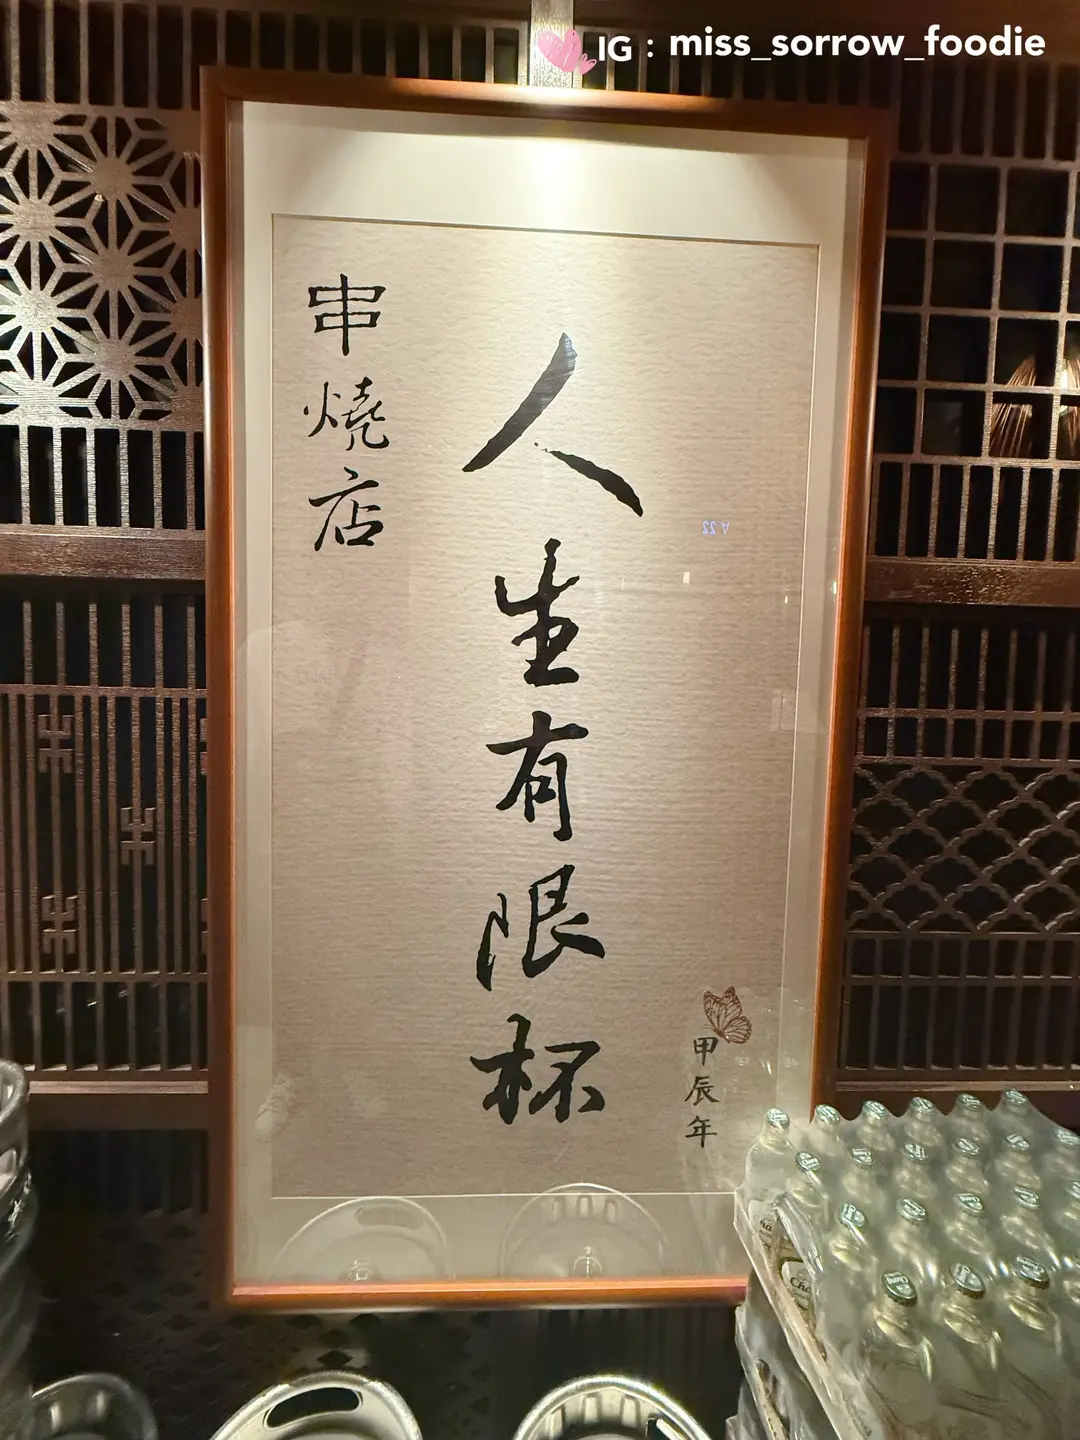 IG : miss_sorrow_foodie
串燒店
人生有限杯
甲辰年
A 22